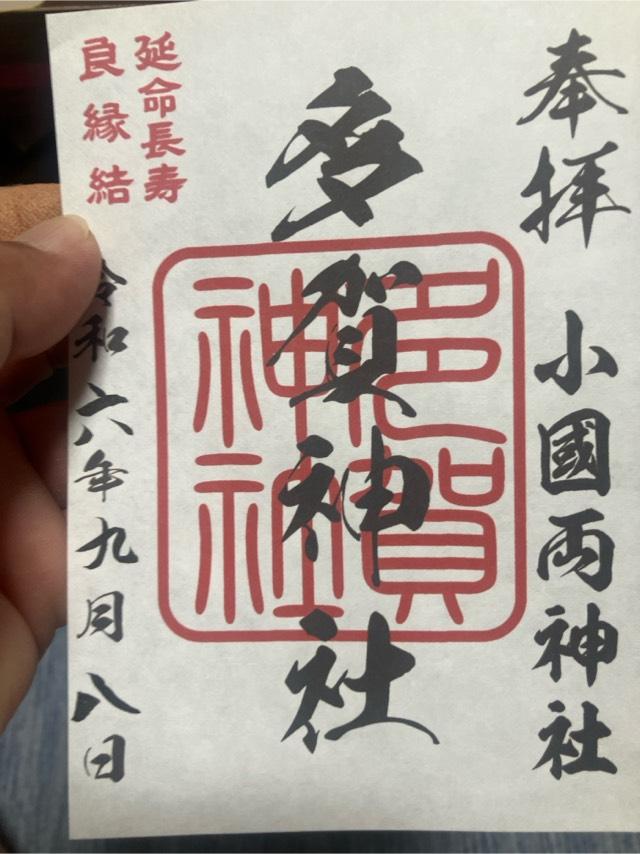 奉拝 小國両神社
多賀神社
多賀神社
延命長寿
良縁結
令和六年九月八日